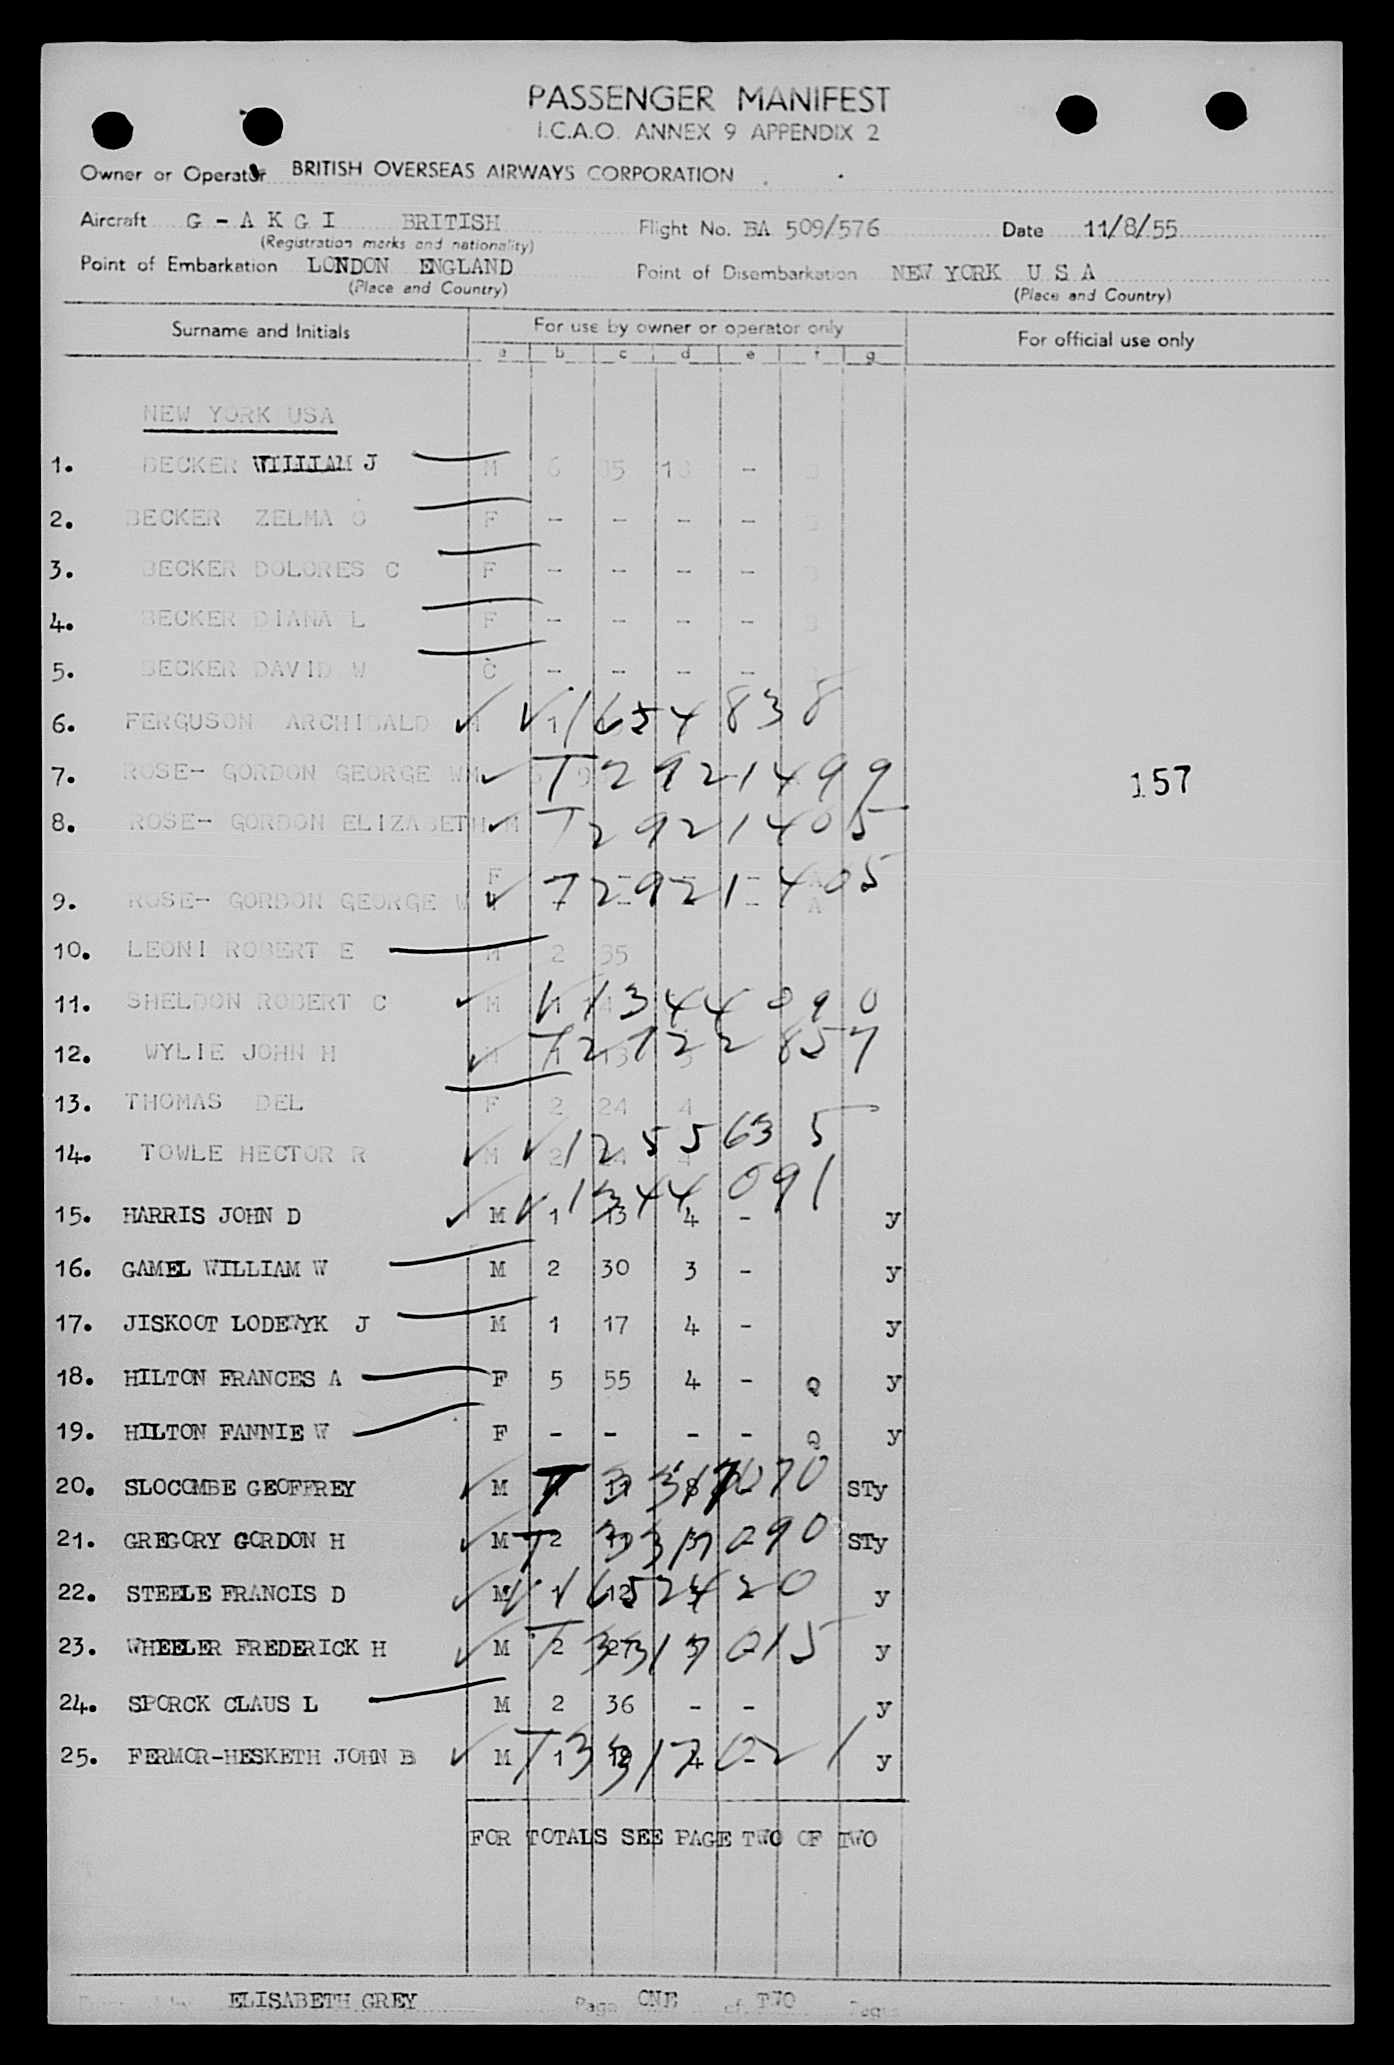 PASSENGER MANIFEST
I.C.A.O. ANNEX 9 APPENDIX 2
Owner or Operator BRITISH OVERSEAS AIRWAYS CORPORATION
Aircraft G - A K G I BRITISH Flight No. BA 509/576 Date 11/8/55
(Registration marks and nationality)
Point of Embarkation LONDON ENGLAND Point of Disembarkation NEW YORK U S A
(Place and Country) (Place and Country)
Surname and Initials For use by owner or operator only For official use only
a b c d e f g
NEW YORK USA
1. BECKER WILLIAM J M 6 18 -
2. BECKER ZELMA F - - - -
3. BECKER DOLORES C F - - - -
4. BECKER DIANA L F - - - -
5. BECKER DAVID W C - - - -
6. FERGUSON ARCHIBALD M 1 V1654838
7. ROSE- GORDON GEORGE W M T2921499
157
8. ROSE- GORDON ELIZABETH M T2921405
F - - - - A
9. ROSE- GORDON GEORGE W T2921405 A
10. LEONI ROBERT E M 2 35
11. SHELDON ROBERT C M V1344090
12. WYLIE JOHN H M 1 13 T2722857
13. THOMAS DEL F 2 24 4
14. TOWLE HECTOR R M 2 4 V1255635
15. HARRIS JOHN D M 1 13 4 - y V1344091
16. GAMEL WILLIAM W M 2 30 3 - y
17. JISKOOT LODEWYK J M 1 17 4 - y
18. HILTON FRANCES A F 5 55 4 - Q y
19. HILTON FANNIE W F - - - - Q y
20. SLOCOMBE GEOFFREY M T3317070 STy
21. GREGORY GORDON H M 2 T3317090 STy
22. STEELE FRANCIS D M 1 12 V1652420 y
23. WHEELER FREDERICK H M 2 27 T3317015 y
24. SPORCK CLAUS L M 2 36 - - y
25. FERMOR-HESKETH JOHN B M 1 4 - T3317021 y
FOR TOTALS SEE PAGE TWO OF TWO
ELISABETH GREY Page ONE of TWO Pages